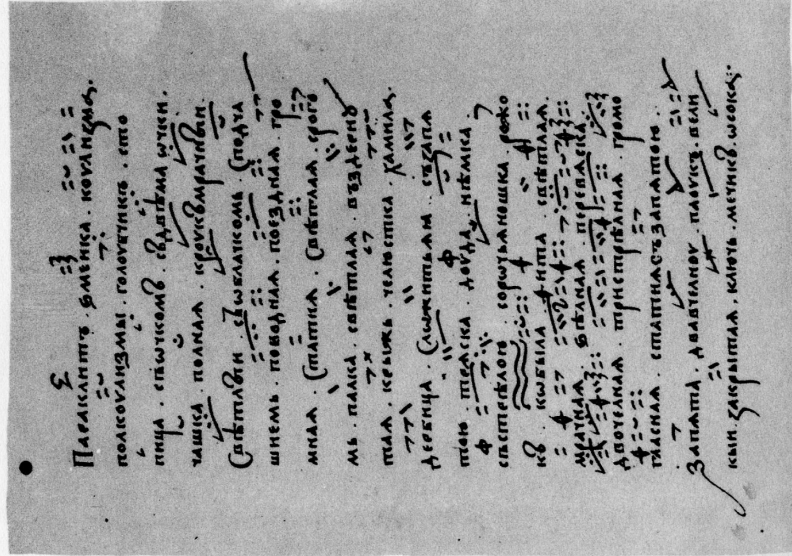 Параклитъ · ѕмеица · коулизма ·
полкоулизмы · голоубчикъ · сто
пица · съѡчкомъ · съдвѣма ѡчки ·
чашка · полная · крюкъмрачныи ·
Свѣтлыи · съѡблакомъ · Сподча
шиемъ · поводная · поездная · гро
мная · Статиа · Свѣтлая · срого
мь · палка · свѣтлая · въздерну
тая · крыжь · челюстка · хамила ·
дербица · Сложитьѧ · съзапѧ
тою · тряска · доуда · нѣмка
състрѣлою рожо
къ · кобыла · фита · свѣтлая ·
мрачная · перевязка
двочелная · тристрѣлная · громо
гласная · статиасъзапѧтою
Запѧта · двавчелноу · паоукъ · вели
кыи · закрытая · ключь · мечикъ · ѡсока ·